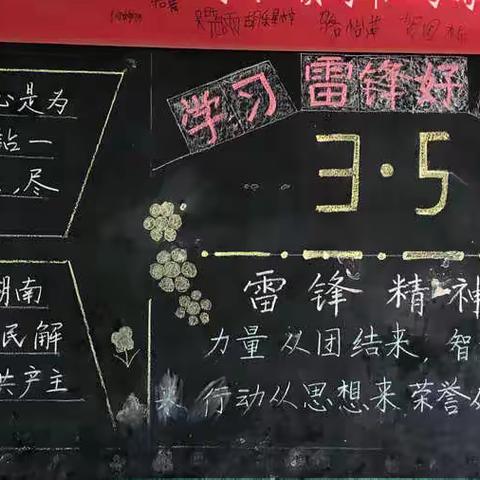 心是为
钻一
,尽
湖南
民解
共产主
学习雷锋好
3·5
雷锋精神
力量从团结来，智
来 行动从思想来荣誉从